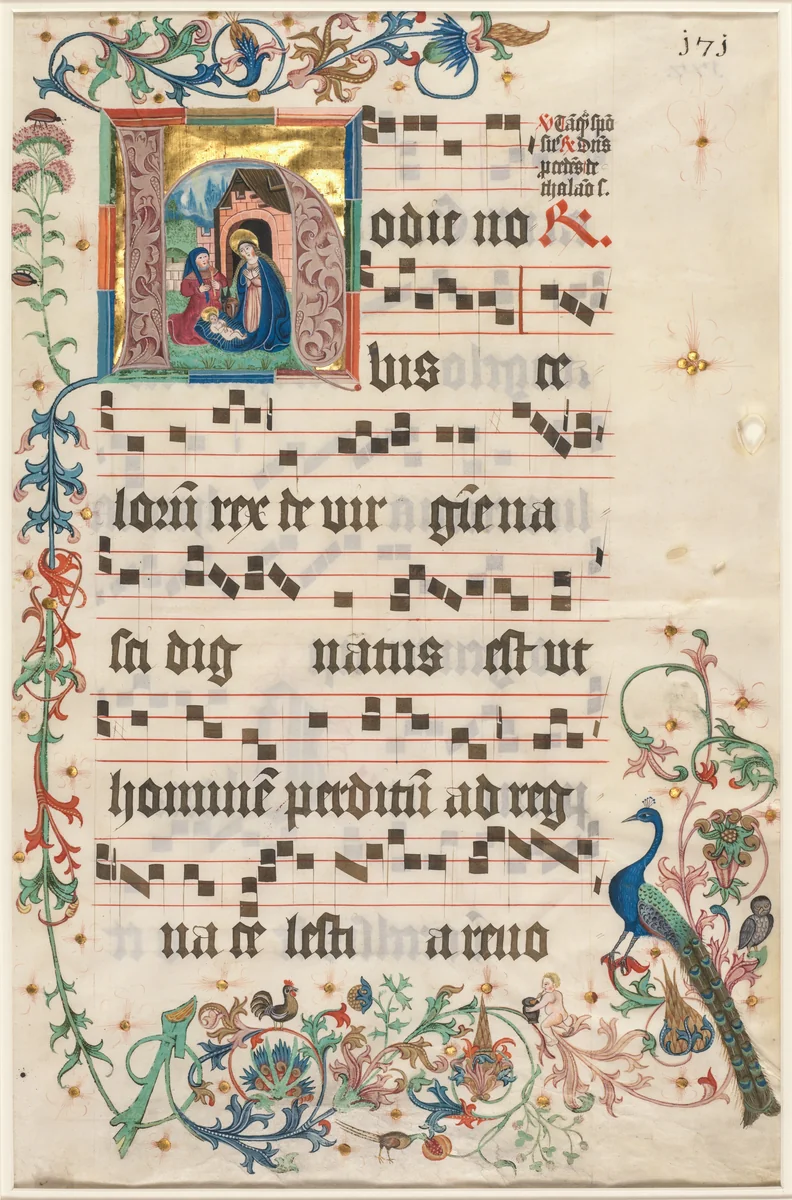 j7j
V Tāq̄ʒ spō
sus R Dn̄s
pcedēs de
thalāo s.
Hodie no R.
bis ce
loru̅ rex de vir gi̅e na
sci dig natus est ut
homine̅ perditu̅ ad reg
na ce lesti a revo